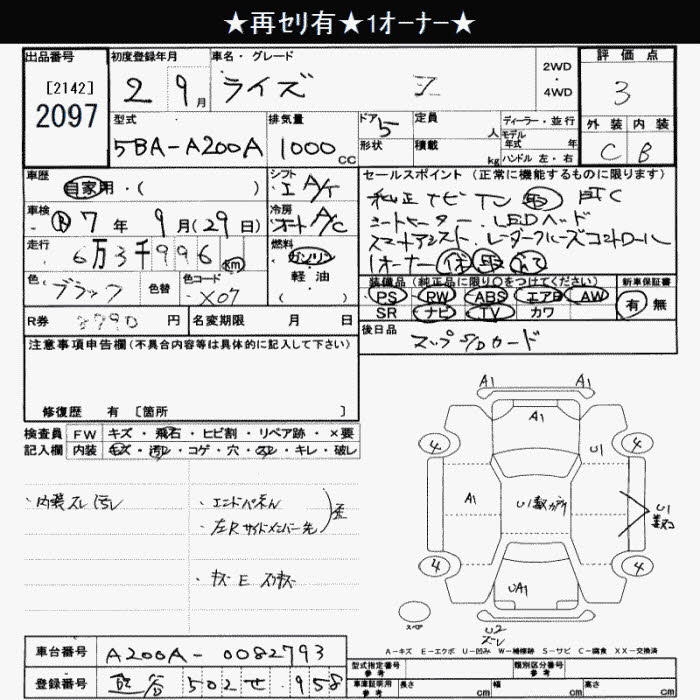 ★再セリ有★1オーナー★
出品番号
[2142]
2097
初度登録年月
2 9月
車名・グレード
ライズ Z
2WD
・
4WD
評価点
3
型式
5BA-A200A
排気量
1000 CC
ドア 5
形状
定員 人
積載 kg
ディーラー・並行
モデル年式 年
ハンドル 左・右
外装 内装
C B
車歴
自家用・( )
シフト
I A/T
セールスポイント(正常に機能するものに限ります)
純正ナビ TV ETC
シートヒーター・LEDヘッド
スマートアシスト・レーダークルーズコントロール
1オーナー 保 取
車検
R 7年 9月(29日)
冷房
オート A/C
走行
6万3千996 km
燃料
ガソリン
軽・油
( )
色
ブラック
色替
色コード
X07
装備品(純正品に限り○をつけてください)
PS PW ABS エアB AW
SR ナビ TV カワ
新車保証書
有 無
R券 8990円
名変期限 月 日
後日品
マップSDカード
注意事項申告欄(不具合内容等は具体的に記入して下さい)
修復歴 有 [箇所 ]
検査員記入欄
FW キズ・飛石・ヒビ割・リペア跡・×要
内装 キズ・汚レ・コゲ・穴・スレ・キレ・破レ
・内装スレ汚レ
・エンドパネル
・左Rサイドメンバー先
歪
・キズ E スリキズ
A1 A1
A1
4 4
U1
A1
U1
4 4
UA1
U2
スレ
スペア
A-キズ E-エクボ U-凹み W-補修跡 S-サビ C-腐食 XX-交換済
車台番号 A200A-0082793
登録番号 熊谷 502 せ・958
型式指定番号 参考
類別区分番号 参考
車庫証明用 参考
長さ cm 幅 cm 高さ cm